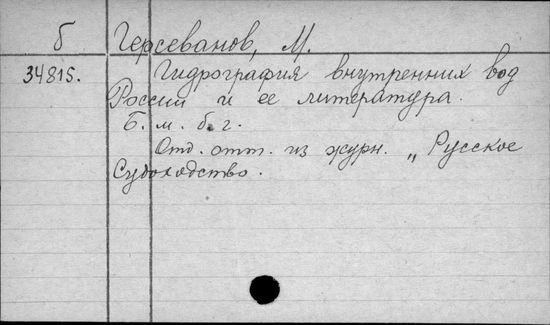 б Герсеванов, М.
34815. Гидрография внутренних вод
России и ее литература.
Б. м. б. г.
Отд. отт. из журн. „Русское
Судоходство.